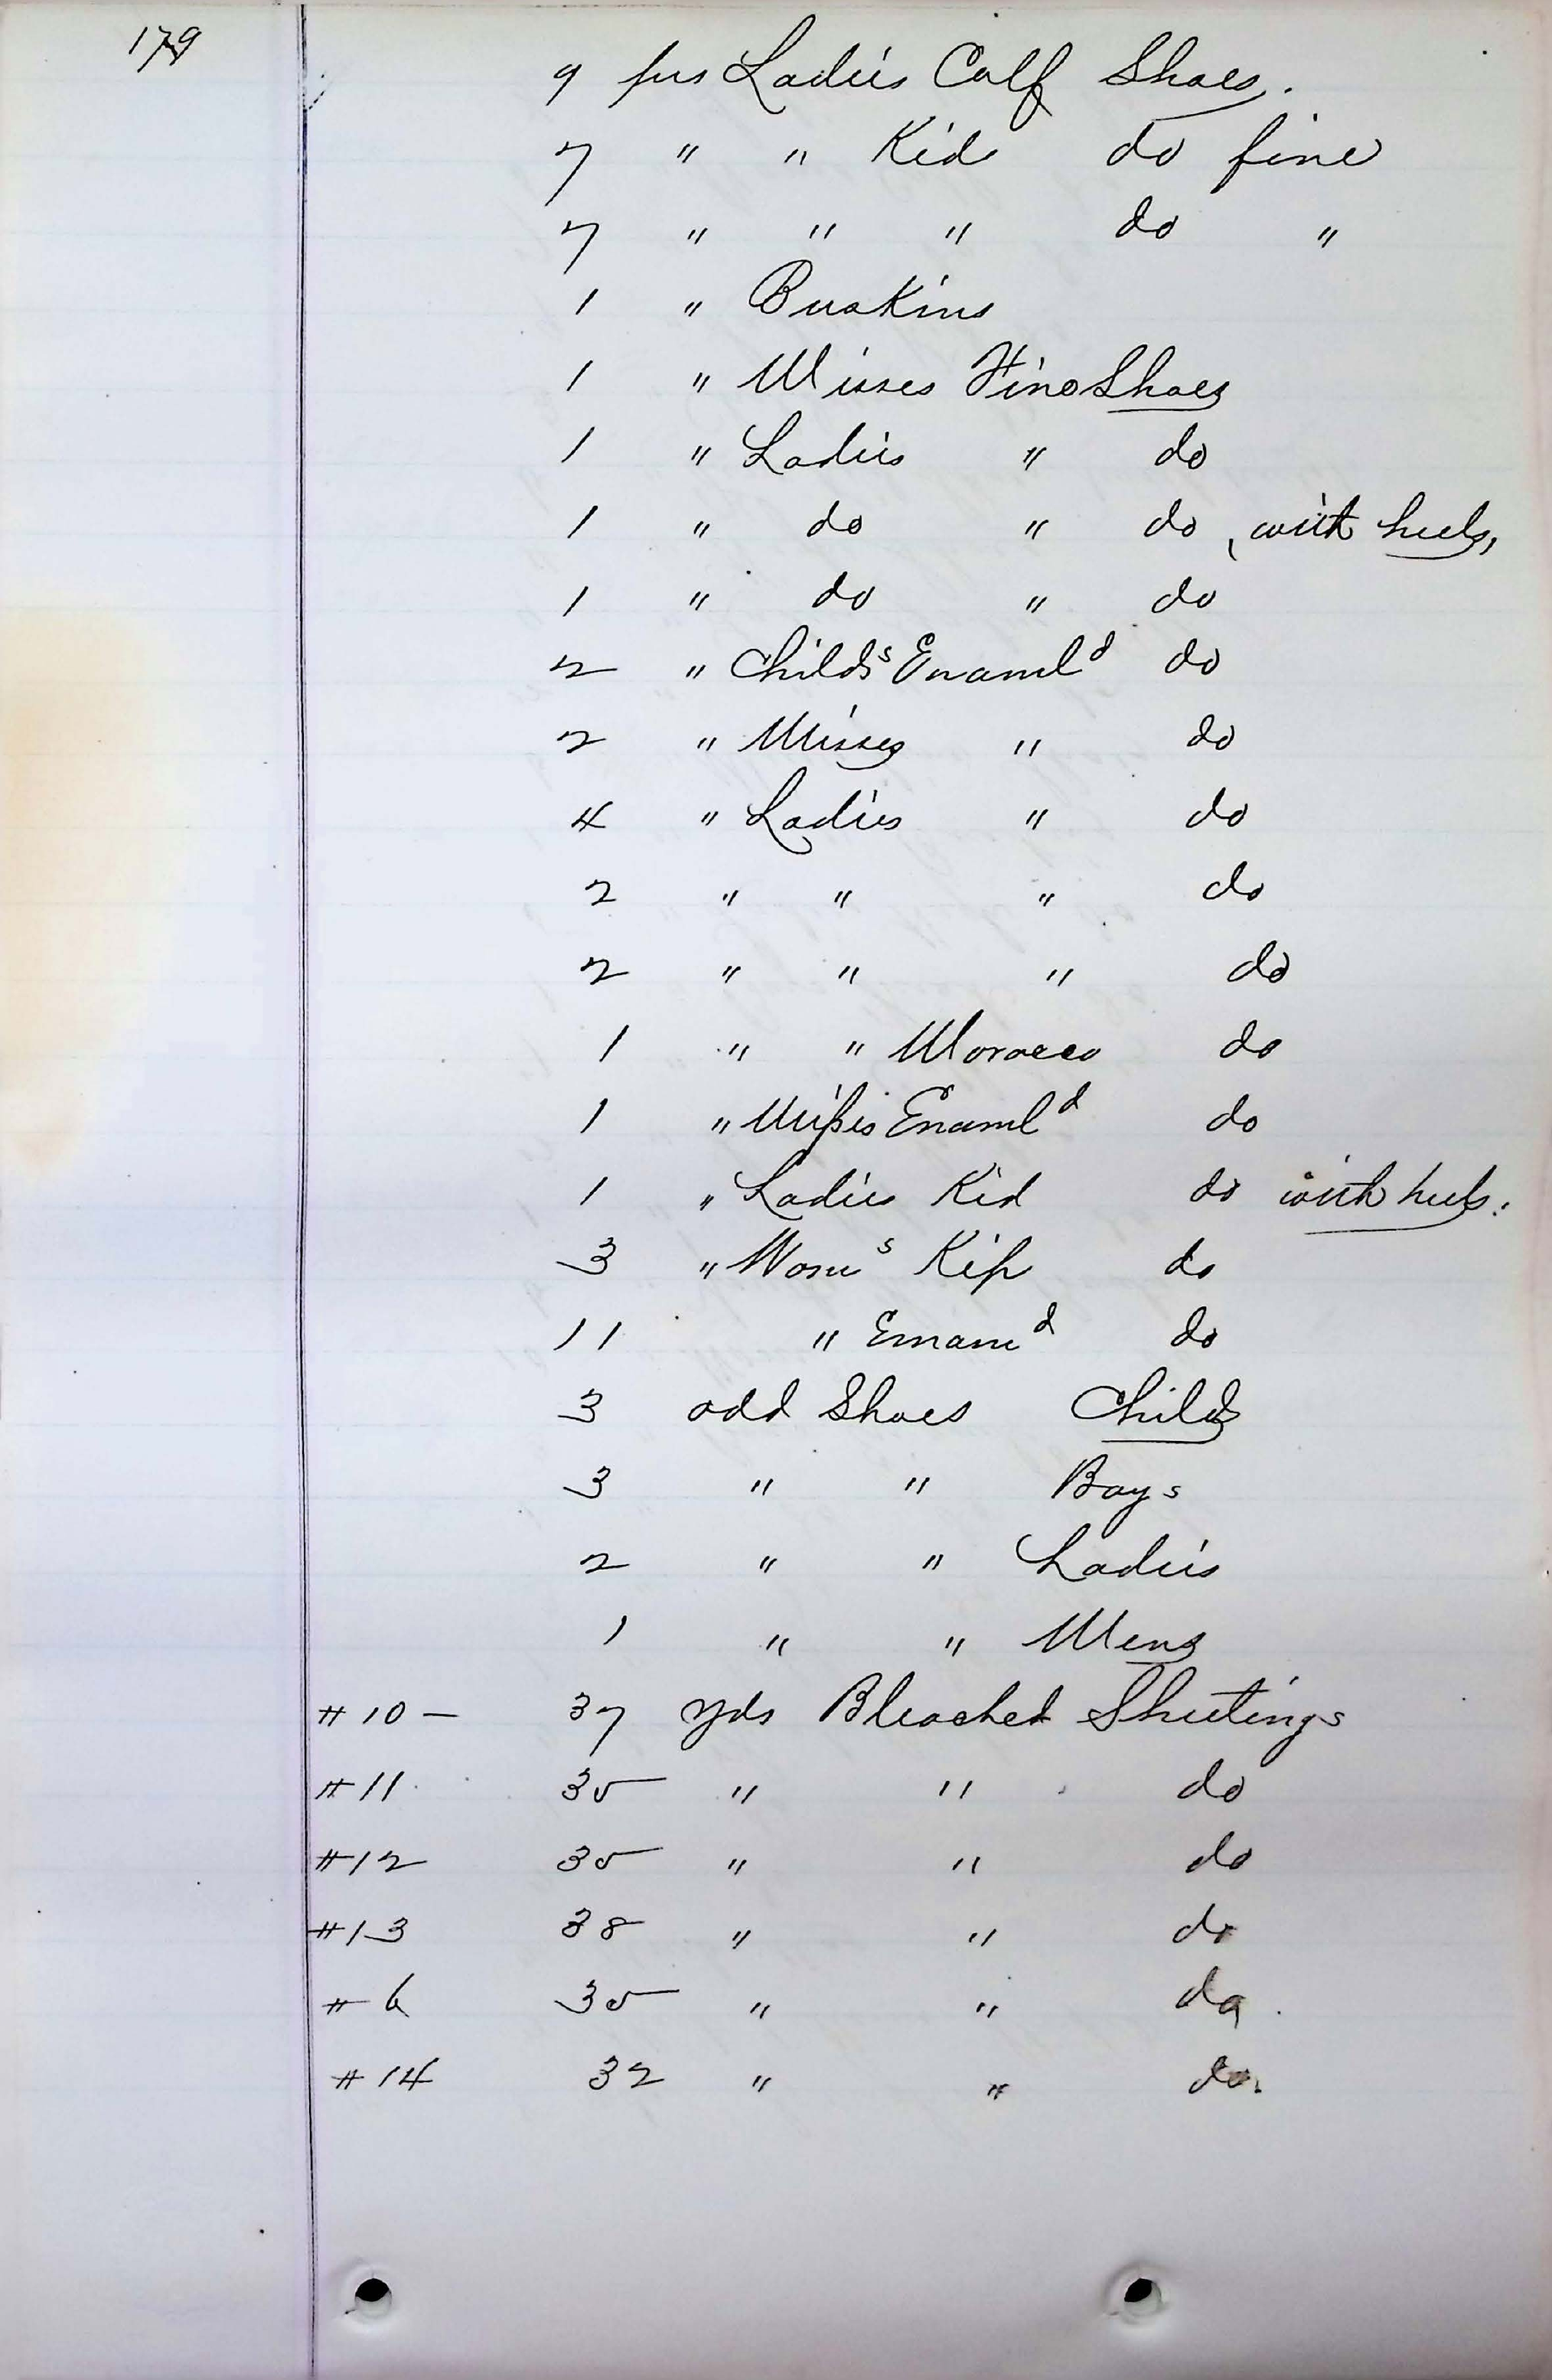 179
9 prs Ladies Calf Shoes.
7 " " Kid do fine
7 " " " do "
1 " Buskins
1 " Misses Fine Shoes
1 " Ladies " do
1 " do " do, with heels,
1 " do " do
2 " Childs Enamld do
2 " Misses " do
4 " Ladies " do
2 " " " do
2 " " " do
1 " " Morocco do
1 " Misses Enamld do
1 " Ladies Kid do with heels.
3 " Woms Kip do
11 " Enamd do
3 odd Shoes Childs
3 " " Boys
2 " " Ladies
1 " " Mens
#10 - 37 yds Bleached Sheetings
#11 35 " " do
#12 35 " " do
#13 38 " " do
#6 35 " " do
#14 32 " " do.